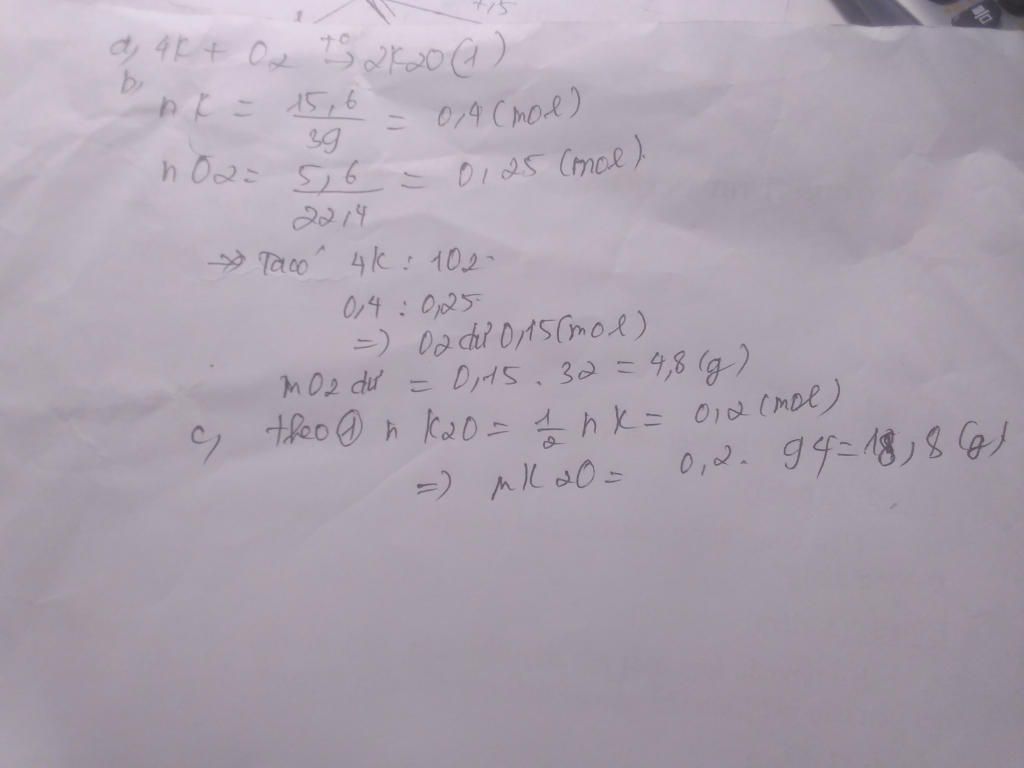 a, 4K + O2 →t° 2K2O (1)
b,
nK = 15,6/39 = 0,4 (mol)
nO2 = 5,6/22,4 = 0,25 (mol).
=> Ta có 4K : 1O2
0,4 : 0,25
=> O2 dư 0,15 (mol)
mO2 dư = 0,15 . 32 = 4,8 (g)
c, theo (1) n K2O = 1/2 nK = 0,2 (mol)
=> mK2O = 0,2 . 94 = 18,8 (g)